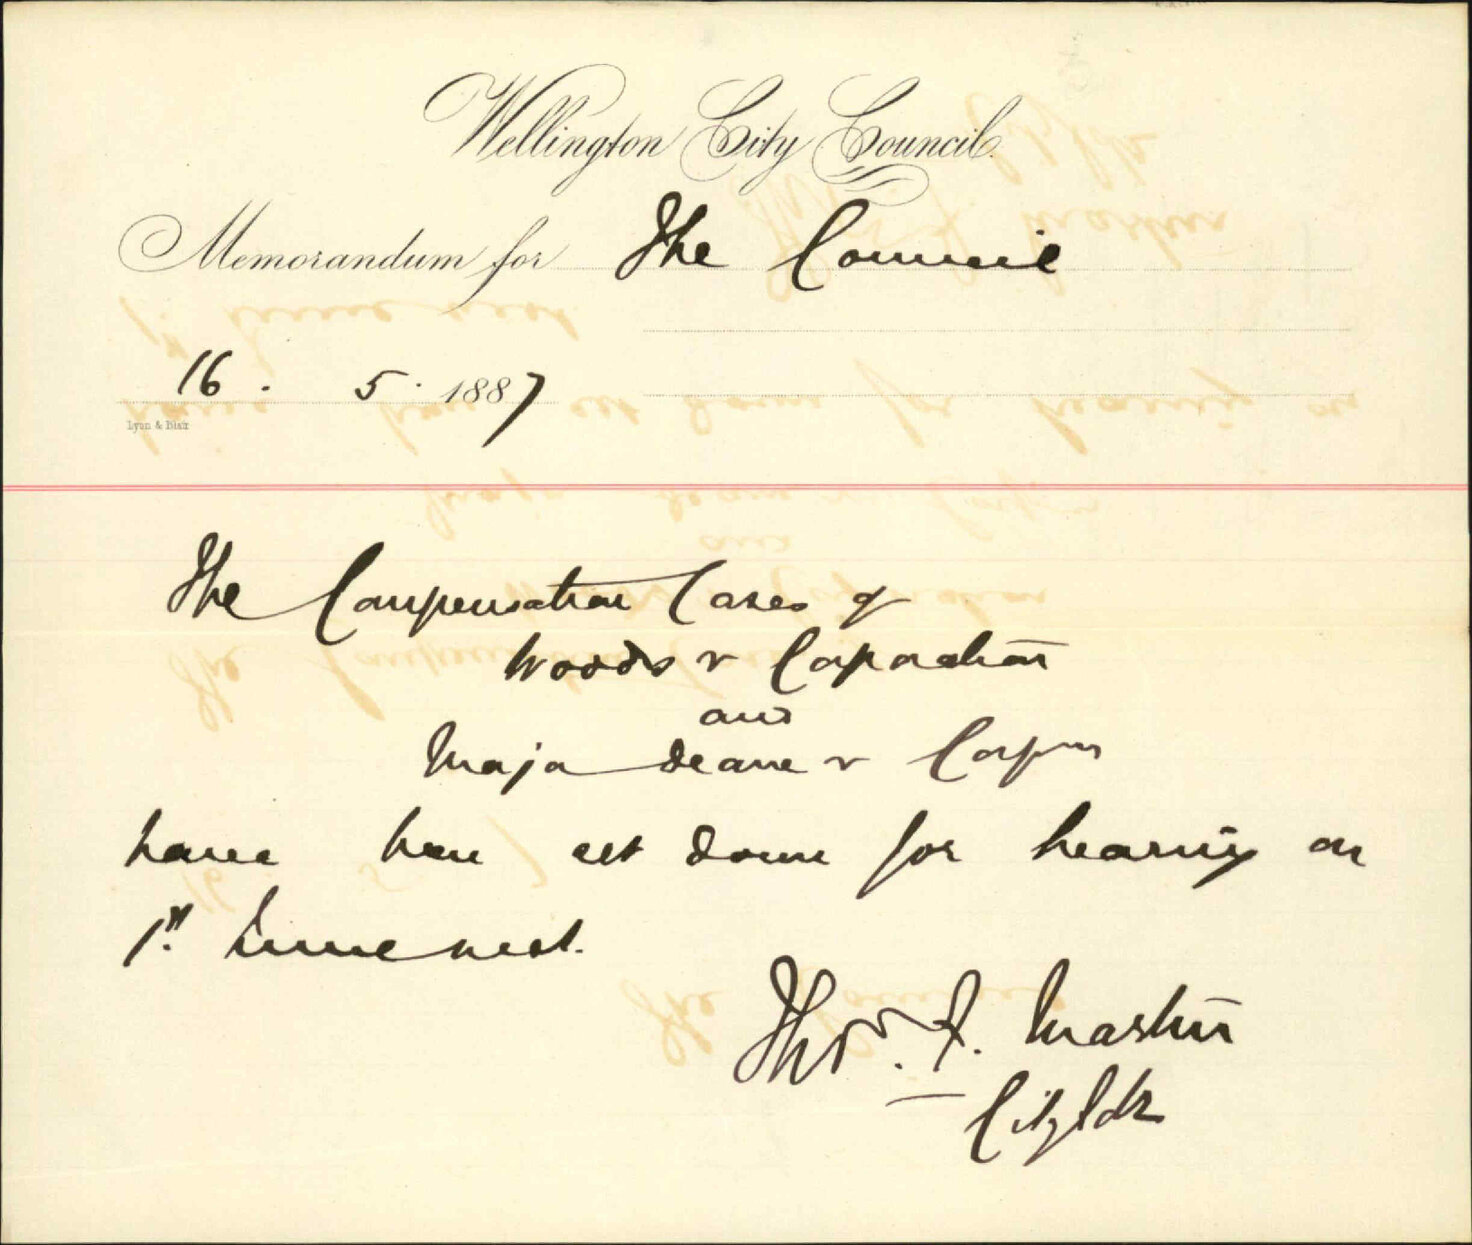 Wellington City Council.
Memorandum for The Council
16 . 5 . 1887
Lyon & Blair
The Compensation Cases of
Woods v Corporation
and
Major Deane v Corpn
have been set down for hearing on
1st June next.
Thos. F. Martin
City Solr